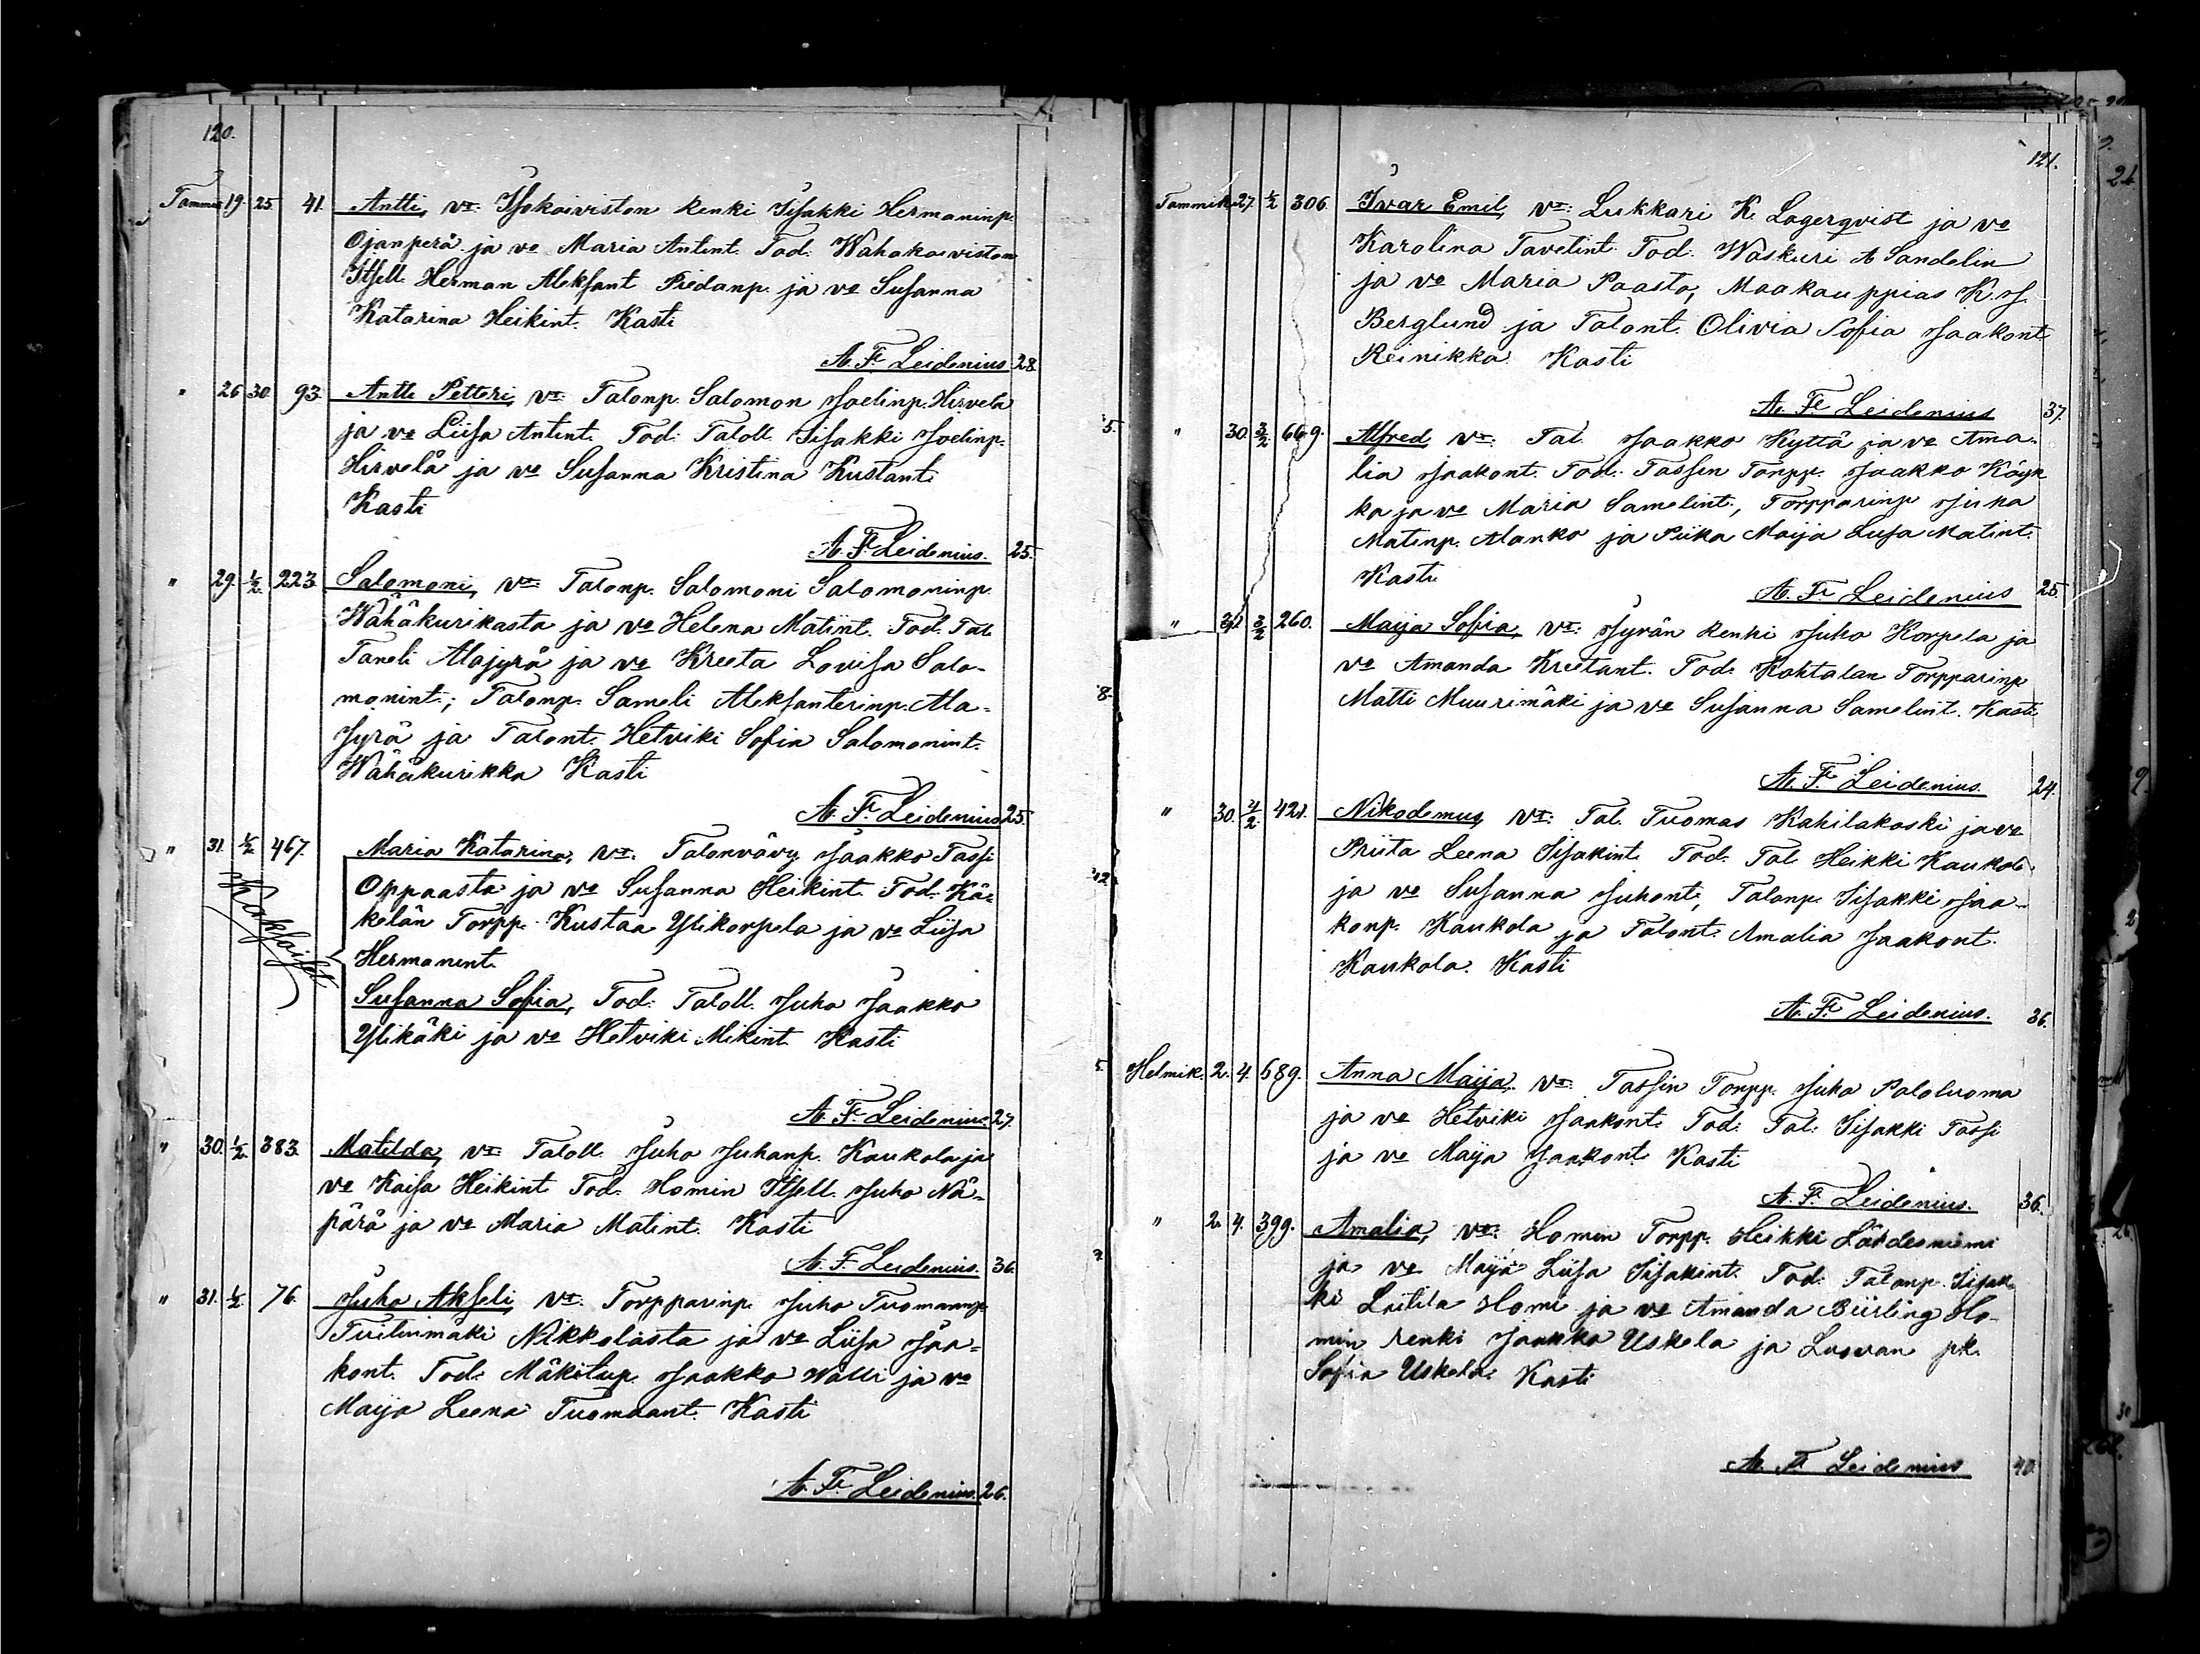 120.
Tammik 19 25 41. Antti, vt: Isokoiviston Renki Iisakki Hermaninp.
Ojanperä ja vo Maria Antint. Tod: Wähäkoiviston
Itsell. Herman Aleksant. Piedanp. ja vo Susanna
Katarina Heikint. Kasti
A. F. Leidenius. 28
" 26 30 93. Antti Petteri, vt: Talonp. Salomon Joelinp. Hirvelä
ja vo Liisa Antint. Tod: Taloll. Iisakki Joelinp.
Hirvelä ja vo Susanna Kristina Kustant.
Kasti
A. F. Leidenius. 25.
" 29. 1/2. 223. Salomoni, vt: Talonp. Salomoni Salomoninp.
Wähäkurikasta ja vo Helena Matint. Tod: Tal.
Taneli Alajyrä ja vo Kreeta Lovisa Salo-
monint.; Talonp. Sameli Aleksanterinp. Ala-
jyrä ja Talont. Hetviki Sofia Salomonint.
Wähäkurikka Kasti
A. F. Leidenius 25.
" 31. 1/2 467. Maria Katarina, vt: Talonvävy Jaakko Tassi
Oppaasta ja vo Susanna Heikint. Tod: Kä-
kelän Torpp. Kustaa Ylikorpela ja vo Liisa
Hermanint.
Kaksoiset
Susanna Sofia, Tod: Taloll. Juho Jaakko
Ylikäki ja vo Hetviki Mikint. Kasti
A. F. Leidenius. 27.
" 30. 1/2. 383. Matilda, vt: Taloll. Juho Juhanp. Kaukola ja
vo Kaisa Heikint. Tod: Homin Itsell. Juho Nä-
pärä ja vo Maria Matint. Kasti
A. F. Leidenius. 36.
" 31. 1/2. 76. Juho Akseli, vt: Torpparinp. Juho Tuomaanp.
Nikkolasta ja vo Liisa Jaa-
kont. Tod: Mäkitup. Jaakko Walli ja vo
Maija Leena Tuomaant. Kasti
A. F. Leidenius. 26.
121.
Tammik. 27. 1/2 306. Ivar Emil, vt: Lukkari K. Lagerqvist ja vo
Karolina Tavetint. Tod: Waskuri A Sandelin
ja vo Maria Paasto, Maakauppias K. J.
Berglund ja Talont. Olivia Sofia Jaakont.
Reinikka. Kasti
A. F. Leidenius 37.
" 30. 3/2 669. Alfred, vt: Tal. Jaakko Kyttä ja vo Ama-
lia Jaakont. Tod: Tassin Torpp. Jaakko Köyk
ka ja vo Maria Samelint., Torpparinp. Juha
Matinp. Alanko ja Piika Maija Liisa Matint.
Kasti
A. F. Leidenius 25.
" 31 3/2 260. Maija Sofia, vt: Jyrän Renki Juho Korpela ja
vo Amanda Kreetant. Tod: Kohtalan Torpparinp.
Matti Muurimäki ja vo Susanna Samelint. Kasti
A. F. Leidenius. 24.
" 30. 4/2 421. Nikodemus, vt: Tal. Tuomas Kahilakoski ja vo
Priita Leena Iisakint. Tod: Tal. Heikki Kaukola
ja vo Susanna Juhont., Talonp. Iisakki Jaa-
konp. Kaukola ja Talont. Amalia Jaakont.
Kaukola. Kasti
A. F. Leidenius. 36.
Helmik. 2. 4. 689. Anna Maija, vt: Tassin Torpp. Juho Paloluoma
ja vo Hetviki Jaakont. Tod: Tal: Iisakki Tassi
ja vo Maija Jaakont. Kasti
A. F. Leidenius. 36.
" 2. 4. 399. Amalia, vt: Homin Torpp. Heikki Lähdesniemi
ja vo Maija Liisa Iisakint. Tod: Talonp. Iisak
ki Laitila Homi ja vo Amanda Ho-
min renki Jaakko Uskela ja Luovan pk.
Sofia Uskela. Kasti
A. F. Leidenius 40.